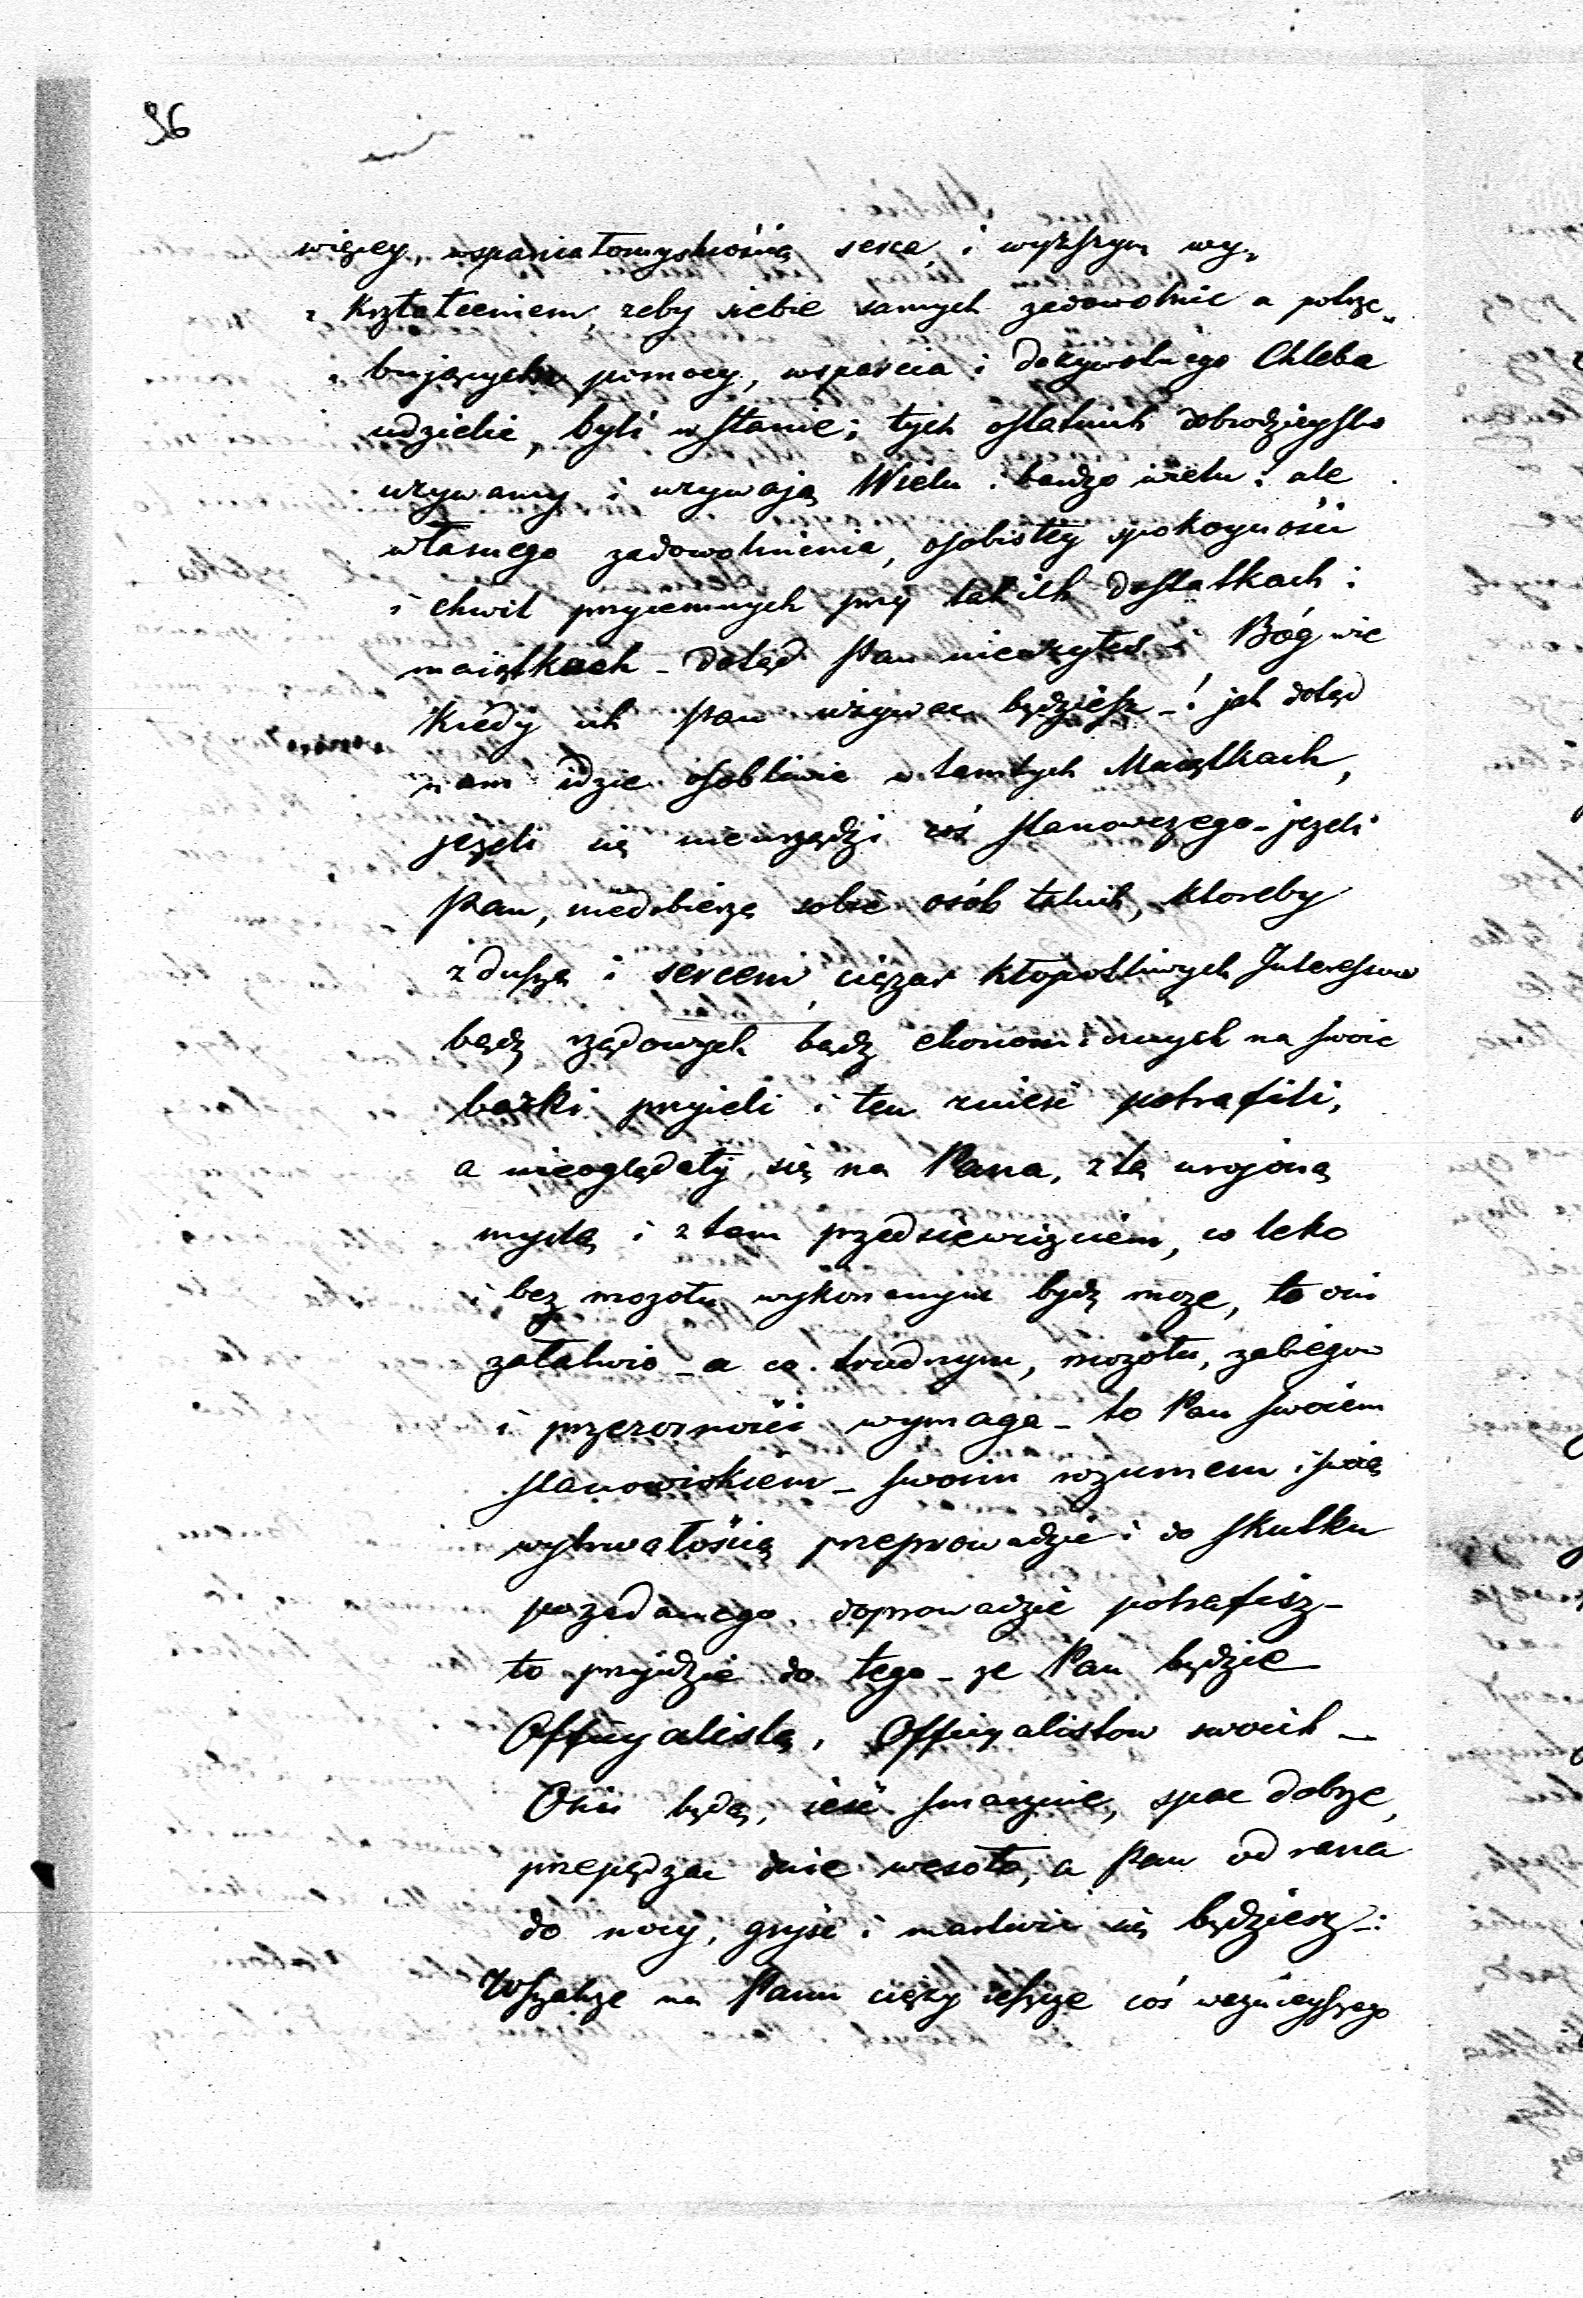 96
więcey, wspaniałomyslnośią serca, i wyższym wy„
kształceniem, zeby siebie samych zadowolnic a potrze„
bujących pomocy, wsparcia i dozywotnego Chleba
udzielic, byli w stanie; tych ostatnich dobrodzieystw
uzywamy i uzywają Wielu i bardzo wielu: ale
własnego zadowolnienia, osobistey spokoynośći
i chwil przyiemnych przy takich dostatkach i
maiątkach - dotąd Pan nieuzyłeś - Bóg wie
kiedy ich Pan używac będziesz -! jak dotąd
nam idzie osobliwie w tamtych Maiątkach,
jezeli się nieurządzi coś stanowczego - jezeli
Pan, niedobierze sobie osób takich, ktoreby
z duszą i sercem, cięzar kłopotliwych Interessow
bądz rządowych bądz ekonomicznych na swoie
barki przyieli i ten znieść potrafili,
a nieoglądały się na Pana, z tą urojoną
myslą i z tem przedsiewzięciem, co leko
i bez mozołu wykonanym bydz moze, to oni
załatwią - a co trudnym, mozołu, zabiegow
i przezornośći wymaga - to Pan swoiem
stanowiskiem - swoim rozumem i swoią
wytrwałośćią przeprowadzic i do skutku
pozadanego doprowadzic potrafisz -
to przyidzie do tego - ze Pan będzie
Officyalistą, Officyalistow swoich -
Oni będą, ieść smacznie, spac dobrze,
przepędzac dnie wesoło, a Pan od rana
do nocy, gryść i martwic się będziesz -:
Wszakze na Panu cięzy ieszcze coś waznieyszego